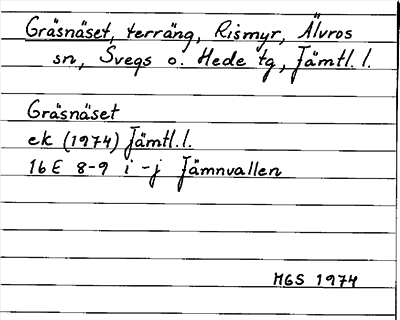 Gräsnäset, terräng, Rismyr, Älvros
sn, Svegs o. Hede tg, Jämtl. l.
Gräsnäset
ek (1974) Jämtl. l.
16E 8-9 i-j Jämnvallen
MGS 1974